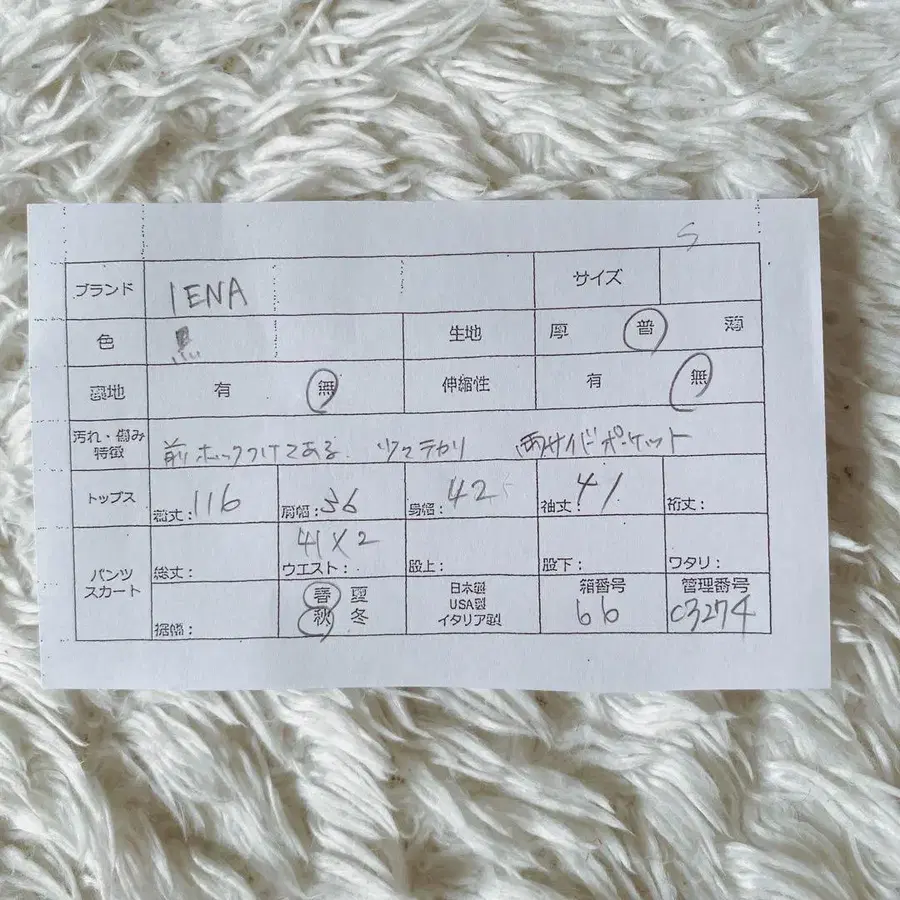 S
ブランド IENA サイズ
色 黒 生地 厚 普 薄
裏地 有 無 伸縮性 有 無
汚れ・傷み
特徴 前ホックつけてある ツヤテカリ 両サイドポケット
トップス 総丈:116 肩幅:36 身幅:42 袖丈:41 裄丈:
41×2
パンツ
スカート 総丈: ウエスト: 股上: 股下: ワタリ:
裾幅: 春 夏 秋 冬
日本製
USA製
イタリア製
箱番号 66
管理番号 C3274